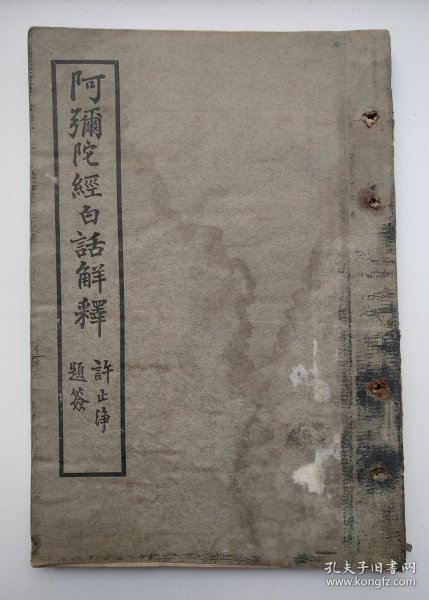 阿彌陀經白話解釋
許止淨
題簽
孔夫子旧书网
www.kongfz.com